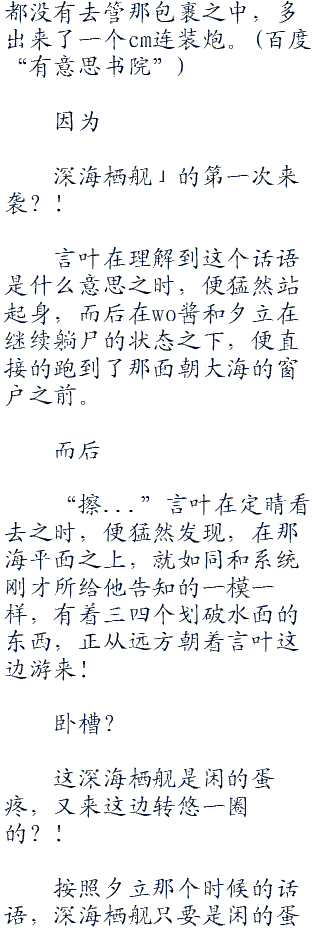 都没有去管那包裹之中，多
出来了一个cm连装炮。(百度
“有意思书院”)
因为
深海栖舰」的第一次来
袭？！
言叶在理解到这个话语
是什么意思之时，便猛然站
起身，而后在wo酱和夕立在
继续躺尸的状态之下，便直
接的跑到了那面朝大海的窗
户之前。
而后
“擦...”言叶在定晴看
去之时，便猛然发现，在那
海平面之上，就如同和系统
刚才所给他告知的一模一
样，有着三四个划破水面的
东西，正从远方朝着言叶这
边游来！
卧槽？
这深海栖舰是闲的蛋
疼，又来这边转悠一圈
的？！
按照夕立那个时候的话
语，深海栖舰只要是闲的蛋